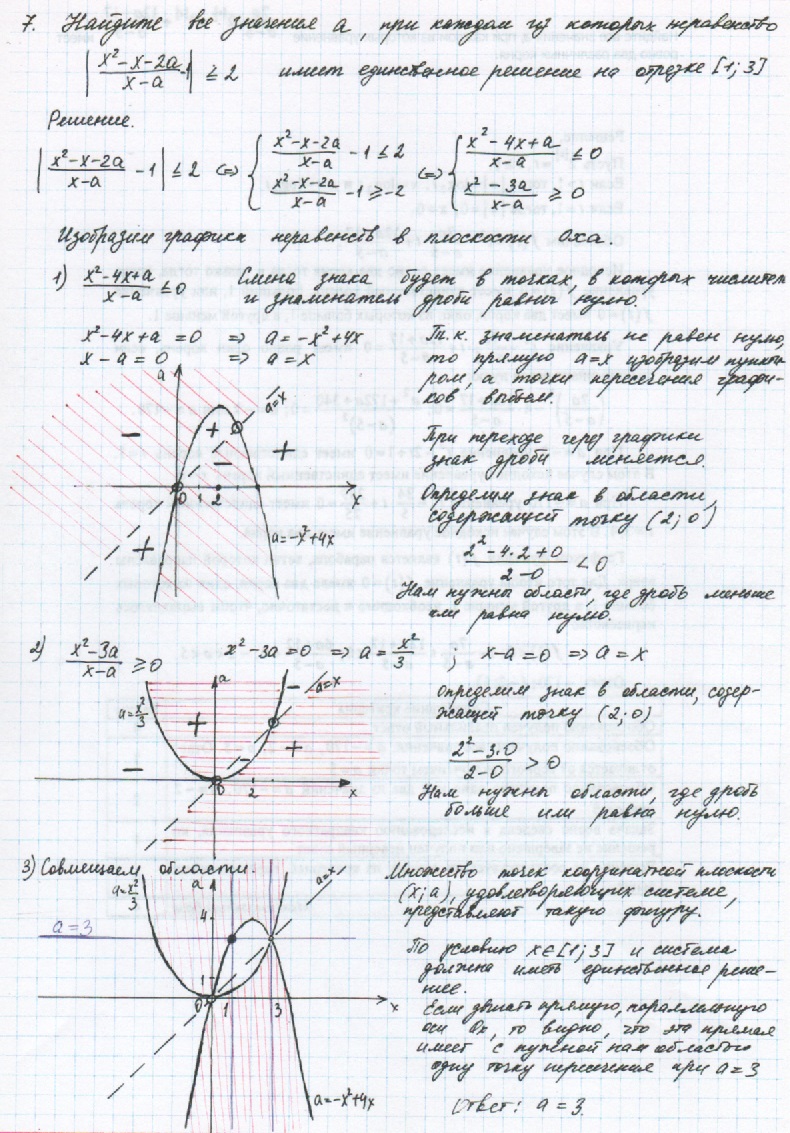 7. Найдите все значения a, при каждом из которых неравенство
|(x²-x-2a)/(x-a) - 1| ≤ 2 имеет единственное решение на отрезке [1; 3]
Решение.
|(x²-x-2a)/(x-a) - 1| ≤ 2 ⇔ { (x²-x-2a)/(x-a) - 1 ≤ 2 ; (x²-x-2a)/(x-a) - 1 ≥ -2 ⇔ { (x²-4x+a)/(x-a) ≤ 0 ; (x²-3a)/(x-a) ≥ 0
Изобразим графики неравенств в плоскости Oxa.
1) (x²-4x+a)/(x-a) ≤ 0 Смена знака будет в точках, в которых числитель
и знаменатель дроби равны нулю.
x²-4x+a = 0 ⇒ a = -x²+4x
x-a = 0 ⇒ a = x
Т.к. знаменатель не равен нулю,
то прямую a=x изобразим пункти-
ром, а точки пересечения графи-
ков выбьем.
a
a=x
- + - + +
0 1 2 x
a=-x²+4x
При переходе через графики
знак дроби меняется.
Определим знак в области,
содержащей точку (2; 0)
(2²-4·2+0)/(2-0) < 0
Нам нужны области, где дробь меньше
или равна нулю.
2) (x²-3a)/(x-a) ≥ 0 x²-3a = 0 ⇒ a = x²/3 ; x-a = 0 ⇒ a = x
a
a=x
a=x²/3
- + - + -
0 2 x
определим знак в области, содер-
жащей точку (2; 0)
(2²-3·0)/(2-0) > 0
Нам нужны области, где дробь
больше или равна нулю.
3) Совмещаем области.
a=x²/3
a
a=x
4
a=3
1
0 1 3 x
a=-x²+4x
Множество точек координатной плоскости
(x; a), удовлетворяющих системе,
представляют такую фигуру.
По условию x∈[1; 3] и система
должна иметь единственное реше-
ние.
Если двигать прямую, параллельную
оси Ox, то видно, что эта прямая
имеет с нужной нам областью
одну точку пересечения при a=3
Ответ: a=3